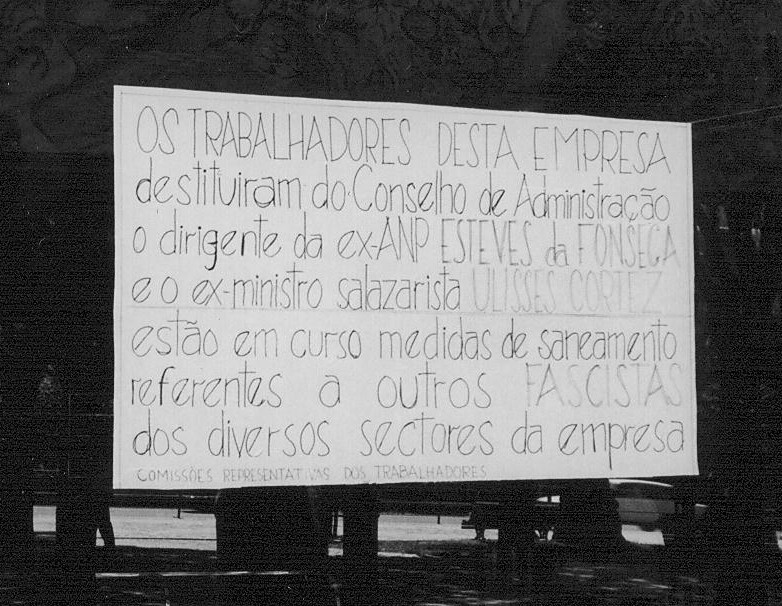 OS TRABALHADORES DESTA EMPRESA
destituiram do Conselho de Administração
o dirigente da ex-ANP ESTEVES da FONSECA
e o ex-ministro salazarista ULISSES CORTEZ
estão em curso medidas de saneamento
referentes a outros FASCISTAS
dos diversos sectores da empresa
COMISSÕES REPRESENTATIVAS DOS TRABALHADORES